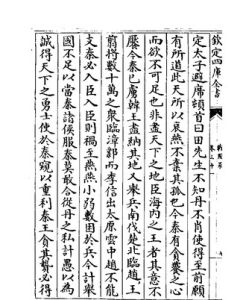 欽定四庫全書
定太子避席頓首曰田先生不知丹不肖使得至前願
有所道此天所以哀燕不棄其孤也今秦有貪饕之心
而欲不可足也非盡天下之地臣海內之王者其意不
饜今秦已虜韓王盡納其地又舉兵南伐楚北臨趙王
翦將數十萬之衆臨漳鄴而李信出太原雲中趙不能
支秦必入臣入臣則禍至燕燕小弱數困於兵今計舉
國不足以當秦諸侯服秦莫敢合從丹之私計愚以為
誠得天下之勇士使於秦窺以重利秦王貪其贄必得